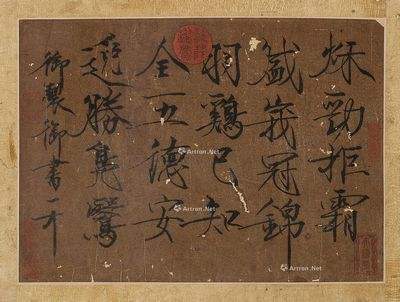 秋勁拒霜
盛峩冠錦
羽鷄已知
全五德安
逸勝鳧鷖
御製御書
Artron.Net
Artron.Net
Artron.Net